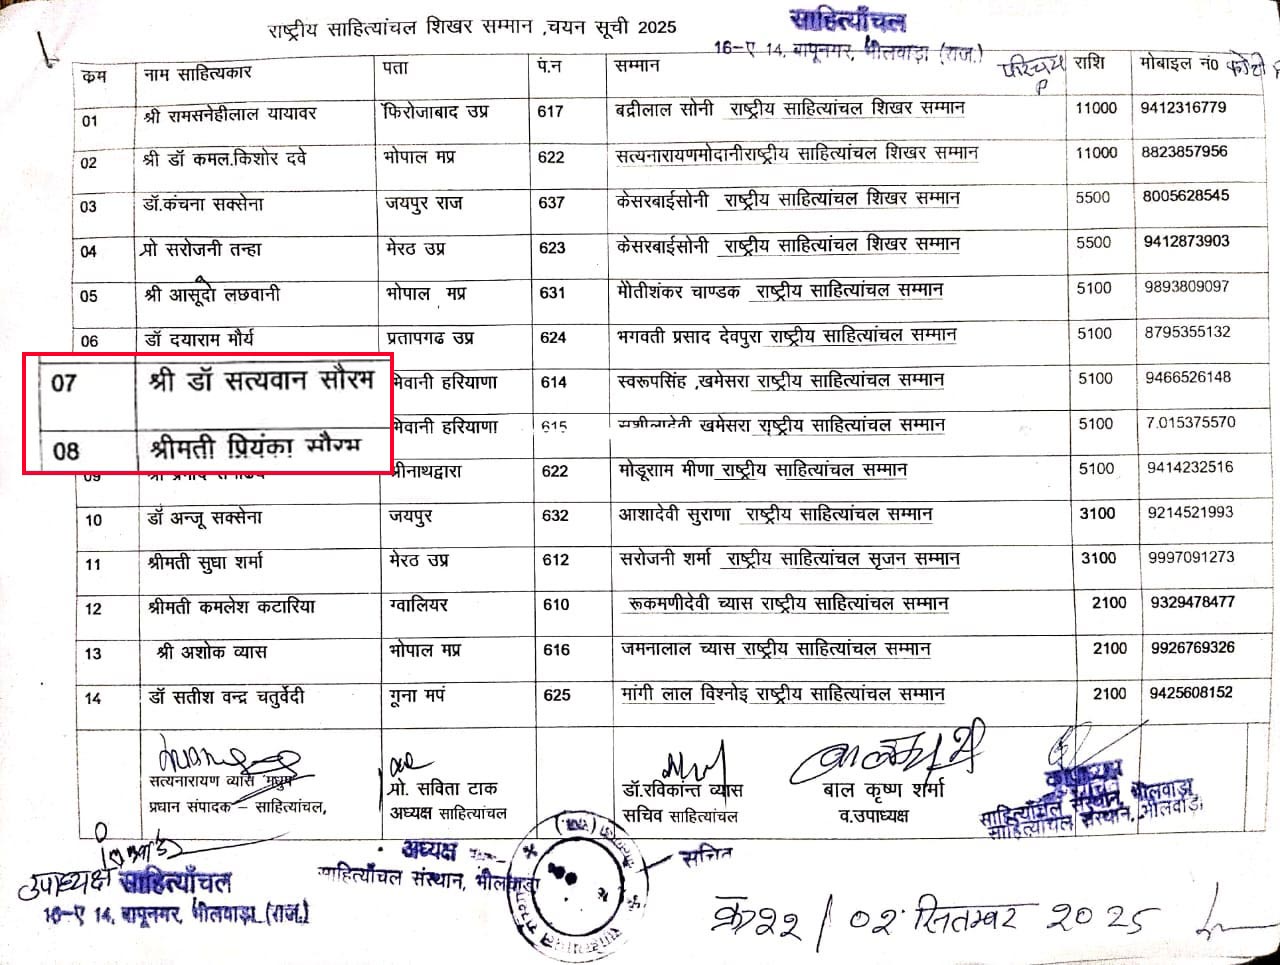 राष्ट्रीय साहित्यांचल शिखर सम्मान ,चयन सूची 2025
साहित्याँचल
16-ए 14, बापूनगर, भीलवाड़ा (राज.)
कम नाम साहित्यकार पता पं.न सम्मान परिचय राशि मोबाइल नं0 फोटो
01 श्री रामसनेहीलाल यायावर फिरोजाबाद उप्र 617 बद्रीलाल सोनी राष्ट्रीय साहित्यांचल शिखर सम्मान 11000 9412316779
02 श्री डॉ कमल.किशोर दवे भोपाल मप्र 622 सत्यनारायणमोदानीराष्ट्रीय साहित्यांचल शिखर सम्मान 11000 8823857956
03 डॉ.कंचना सक्सेना जयपुर राज 637 केसरबाईसोनी राष्ट्रीय साहित्यांचल शिखर सम्मान 5500 8005628545
04 प्रो सरोजनी तन्हा मेरठ उप्र 623 केसरबाईसोनी राष्ट्रीय साहित्यांचल शिखर सम्मान 5500 9412873903
05 श्री आसूदो लछवानी भोपाल मप्र 631 मोतीशंकर चाण्डक राष्ट्रीय साहित्यांचल सम्मान 5100 9893809097
06 डॉ दयाराम मौर्य प्रतापगढ उप्र 624 भगवती प्रसाद देवपुरा राष्ट्रीय साहित्यांचल सम्मान 5100 8795355132
07 श्री डॉ सत्यवान सौरभ भिवानी हरियाणा 614 स्वरूपसिंह ,खमेसरा राष्ट्रीय साहित्यांचल सम्मान 5100 9466526148
08 श्रीमती प्रियंका सौरभ भिवानी हरियाणा 615 खमेसरा राष्ट्रीय साहित्यांचल सम्मान 5100 7.015375570
09 श्रीनाथद्वारा 622 मोडूराम मीणा राष्ट्रीय साहित्यांचल सम्मान 5100 9414232516
10 डॉ अन्जू सक्सेना जयपुर 632 आशादेवी सुराणा राष्ट्रीय साहित्यांचल सम्मान 3100 9214521993
11 श्रीमती सुघा शर्मा मेरठ उप्र 612 सरोजनी शर्मा राष्ट्रीय साहित्यांचल सृजन सम्मान 3100 9997091273
12 श्रीमती कमलेश कटारिया ग्वालियर 610 रूकमणीदेवी व्यास राष्ट्रीय साहित्यांचल सम्मान 2100 9329478477
13 श्री अशोक व्यास भोपाल मप्र 616 जमनालाल व्यास राष्ट्रीय साहित्यांचल सम्मान 2100 9926769326
14 डॉ सतीश वन्द्र चतुर्वेदी गूना मपं 625 मांगी लाल विश्नोइ राष्ट्रीय साहित्यांचल सम्मान 2100 9425608152
सत्यनारायण व्यास मधुप प्रो. सविता टाक डॉ.रविकांत व्यास बाल कृष्ण शर्मा कोषाध्यक्ष
प्रधान संपादक – साहित्यांचल, अध्यक्ष साहित्यांचल सचिव साहित्यांचल व.उपाध्यक्ष साहित्याँचल संस्थान, भीलवाड़ा
अध्यक्ष सचिव
साहित्याँचल संस्थान, भीलवाड़ा
उपाध्यक्ष साहित्याँचल
16-ए 14, बापूनगर, भीलवाड़ा (राज.)
02 सितम्बर 2025